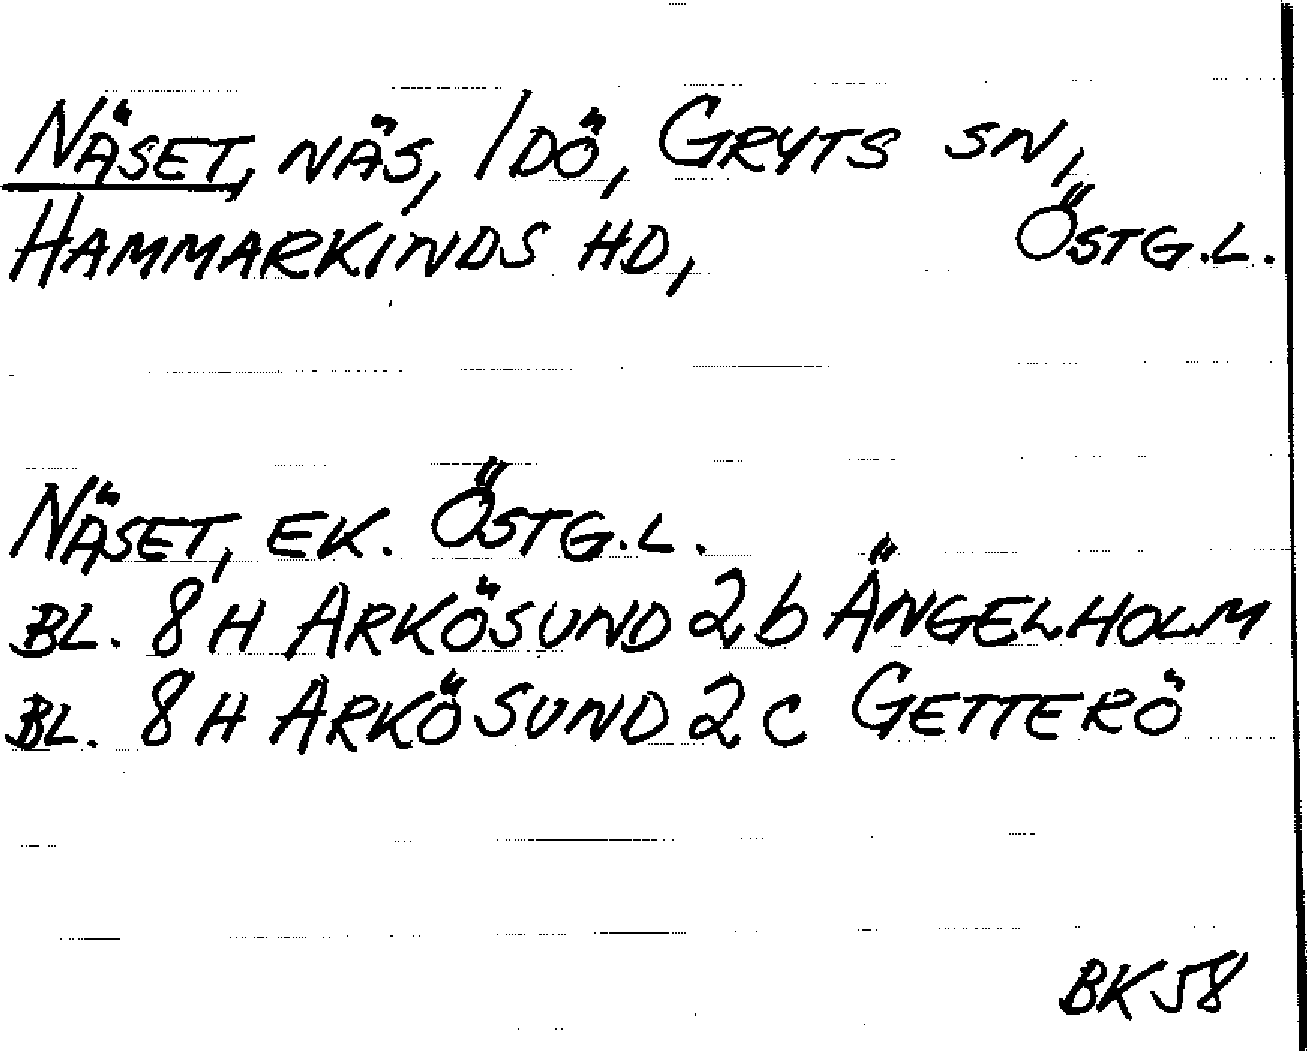 NÄSET, NÄS, IDÖ, GRYTS SN,
HAMMARKINDS HD, ÖSTG.L.
NÄSET, EK. ÖSTG.L.
BL. 8H ARKÖSUND 2b ÄNGELHOLM
BL. 8H ARKÖSUND 2c GETTERÖ
BK58